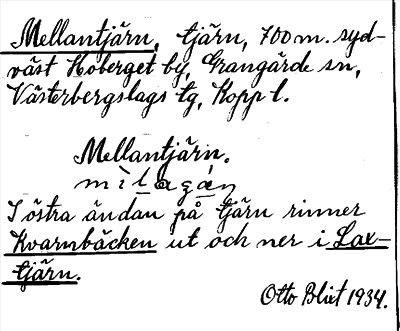 Mellantjärn, tjärn, 700 m. syd-
väst Hoberget by, Grangärde sn,
Västerbergslags tg, Kopp l.
Mellantjärn.
I östra ändan på tjärn rinner
Kvarnbäcken ut och ner i Lax-
tjärn.
Otto Blixt 1934.